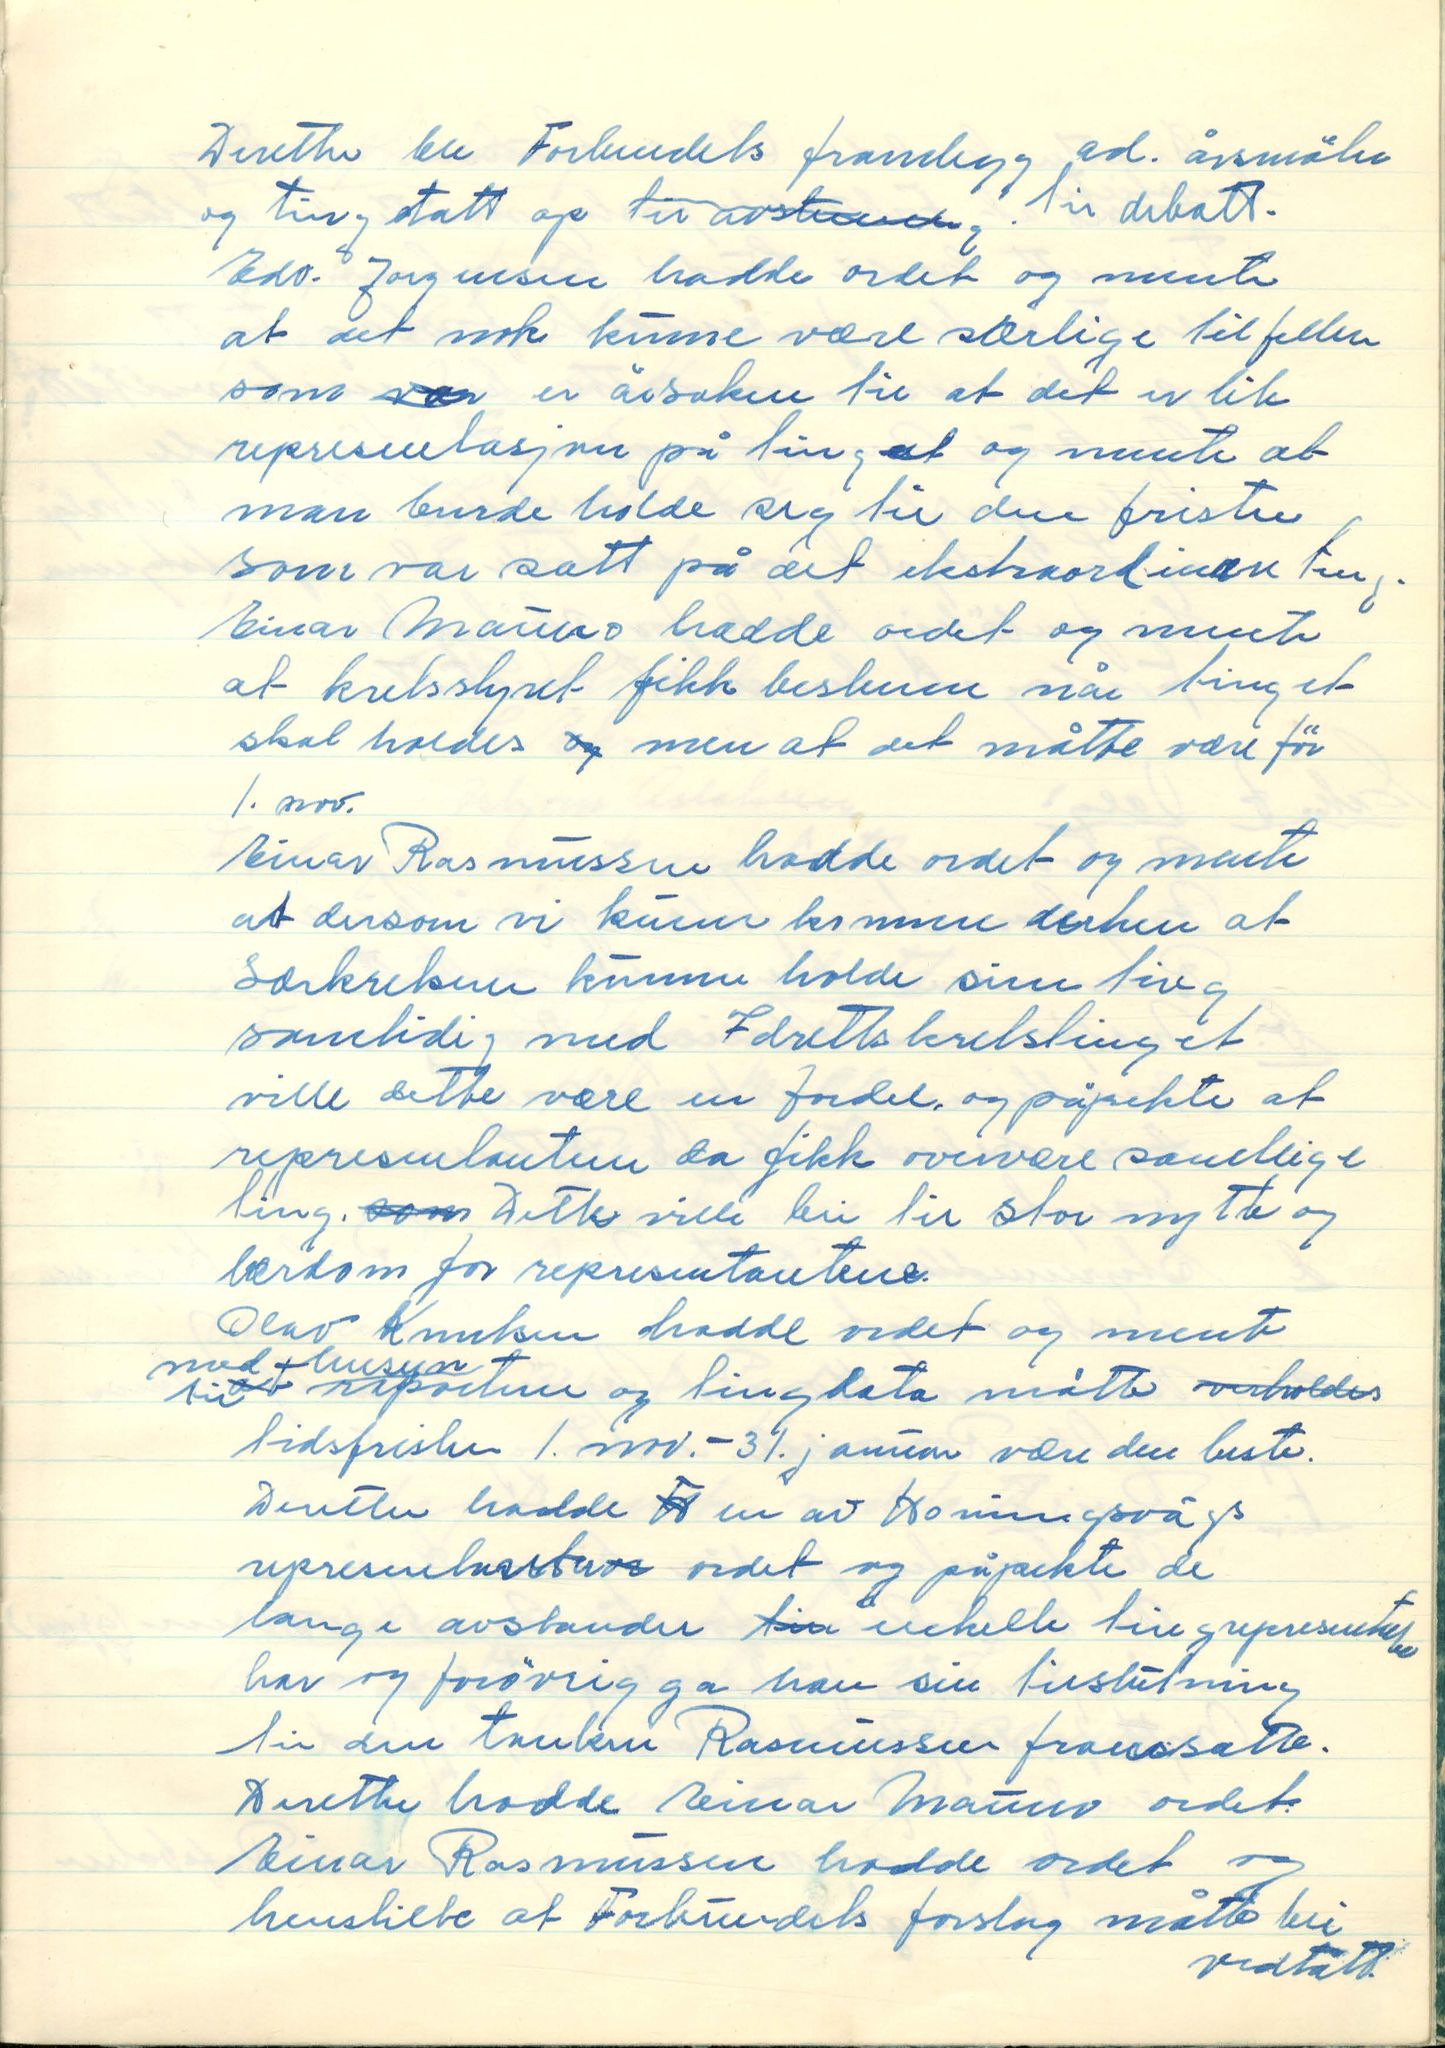 Derette ble Forbundets framlegg ad. årsmöter
og ting tatt op til avstemning. til debatt.
Edv. Jörgensen hadde ordet og mente
at det nok kunne være særlige tilfeller
som var er årsaken til at det er lite
representasjon på tinget og mente at
man burde holde seg til den fristen
som var satt på det ekstraordinære ting.
Einar Mauno hadde ordet og mente
at kretsstyret fikk bestemme når tinget
skal holdes og men at det måtte være för
1. nov.
Einar Rasmussen hadde ordet og mente
at dersom vi kunne komme derhen at
Særkretsene kunne holde sine ting
samtidig med Idrettskretstinget
ville dette være en fordel, og påpekte at
representantene da fikk overvære samtlige
ting. som Dette ville bli til stor nytte og
lærdom for representantene.
Olav Knutsen hadde ordet og mente
med hensyn
til raportene og tingdata måtte overholdes
tidsfristen 1. nov. - 31. januar være den beste.
Deretter hadde H en av Honningsvågs
representanter ordet og påpekte de
lange avstander til enkelte tingrepresentanter
har og forövrig ga han sin tilslutning
til den tanken Rasmussen framsatte.
Derette hadde Einar Mauno ordet.
Einar Rasmussen hadde ordet og
henstilte at Forbundets forslag måtte bli
vedtatt.